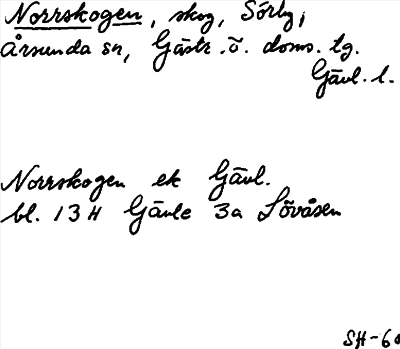 Norrskogen, skog, Sörby,
Årsunda sn, Gästr. ö. doms. tg.
Gävl. l.
Norrskogen ek Gävl.
bl. 13 H Gävle 3a Lövåsen
SH-60